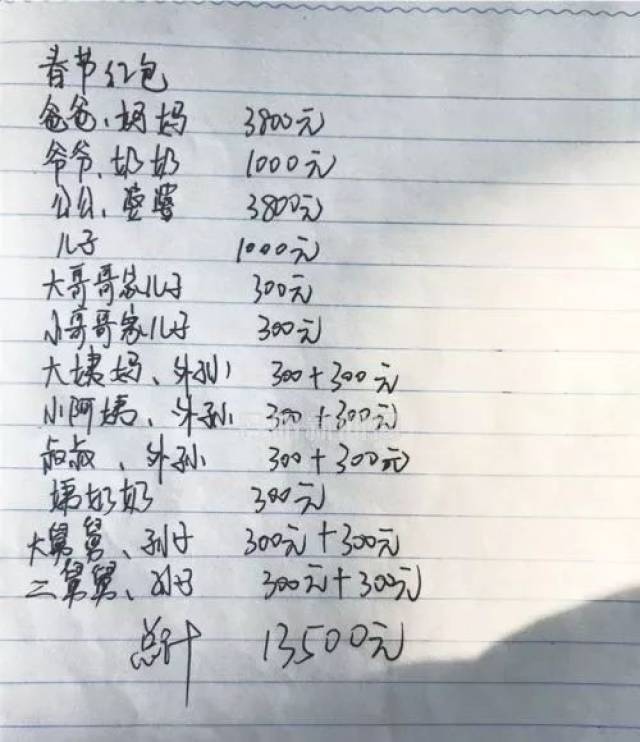 春节红包
爸爸、妈妈 3800元
爷爷、奶奶 1000元
公公、婆婆 3800元
儿子 1000元
大哥哥家儿子 300元
小哥哥家儿子 300元
大姨妈、外孙 300+300元
小阿姨、外孙 300+300元
叔叔、外孙 300+300元
姨奶奶 300元
大舅舅、孙子 300元+300元
二舅舅、孙子 300元+300元
总计 13500元